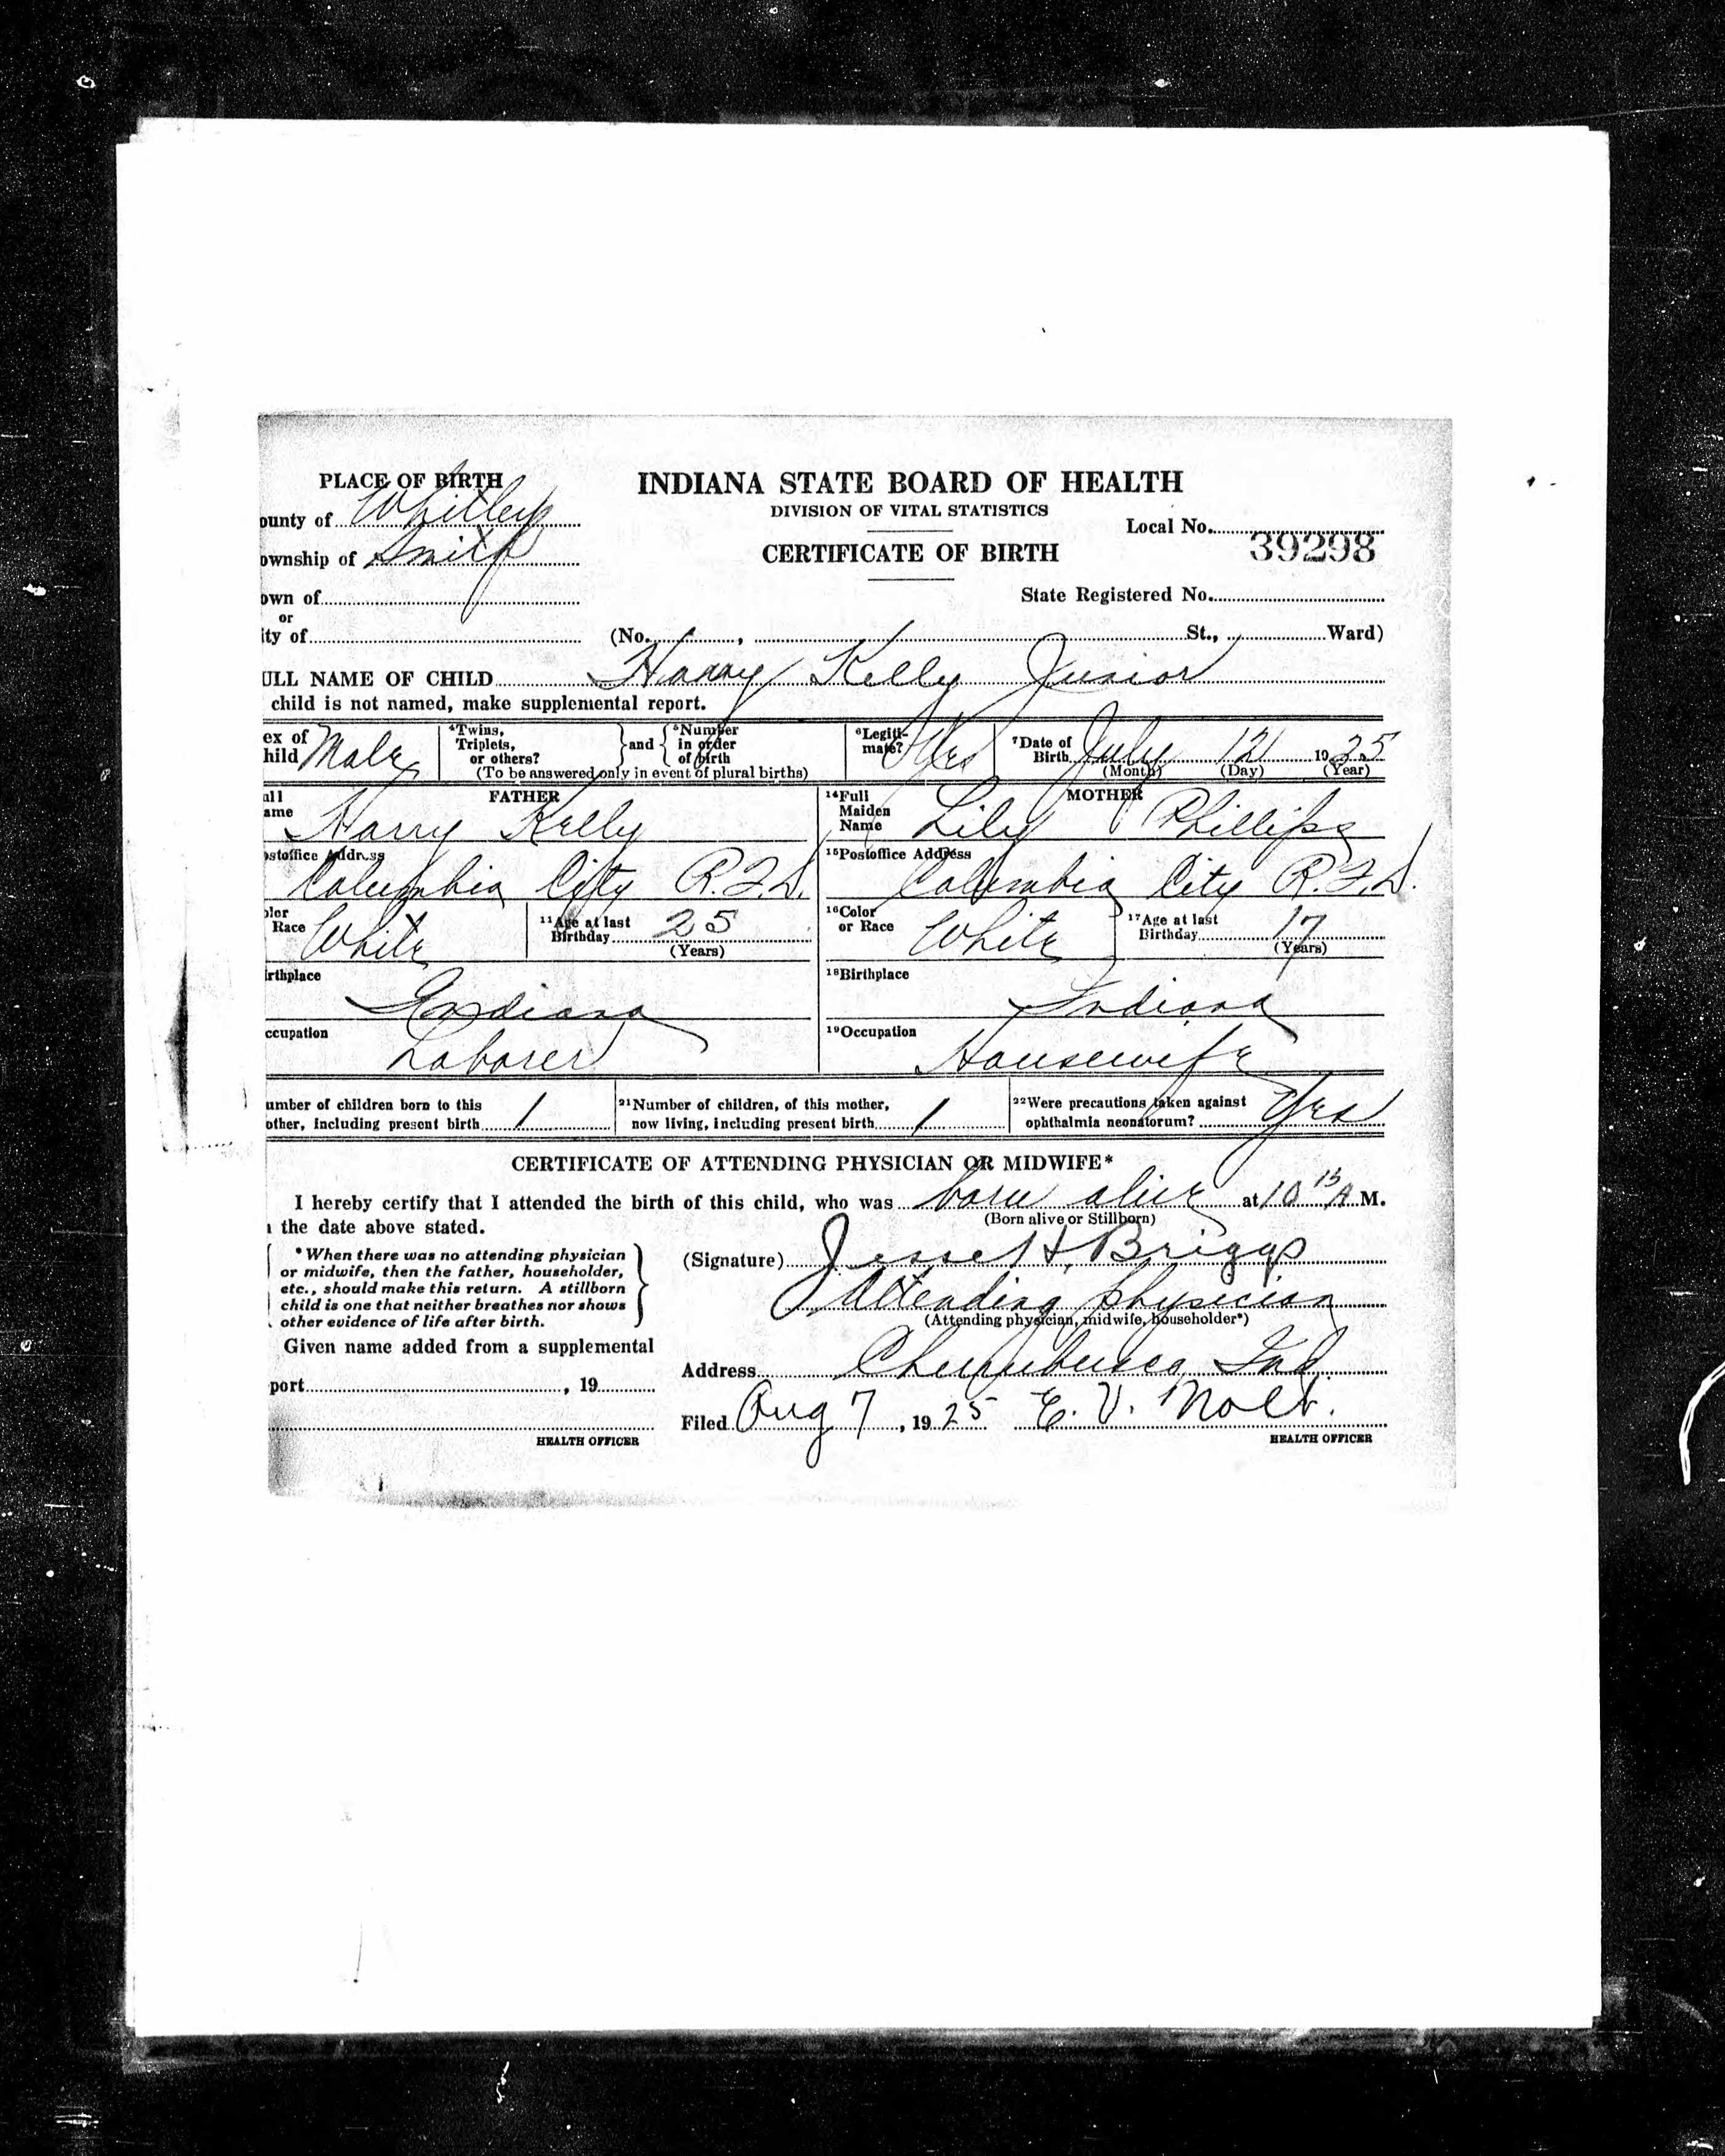 PLACE OF BIRTH
ounty of Whitley
ownship of Smith
own of
or
ity of
INDIANA STATE BOARD OF HEALTH
DIVISION OF VITAL STATISTICS
CERTIFICATE OF BIRTH
Local No.
39298
State Registered No.
(No. , St., Ward)
ULL NAME OF CHILD Harry Kelly Junior
child is not named, make supplemental report.
ex of hild Male
4 Twins, Triplets, or others? } and { 5 Number in order of birth
(To be answered only in event of plural births)
6 Legiti-mate? Yes
7 Date of Birth July 12 1925
(Month) (Day) (Year)
FATHER
ull ame Harry Kelly
14 Full Maiden Name
MOTHER
Lily Phillips
ostoffice Address
Columbia City R.F.D.
15 Postoffice Address
Columbia City R.F.D.
olor Race White
11 Age at last Birthday 25
(Years)
16 Color or Race White
17 Age at last Birthday 17
(Years)
irthplace
Indiana
18 Birthplace
Indiana
ccupation
Laborer
19 Occupation
Housewife
umber of children born to this
other, including present birth 1
21 Number of children, of this mother,
now living, including present birth 1
22 Were precautions taken against
ophthalmia neonatorum? Yes
CERTIFICATE OF ATTENDING PHYSICIAN OR MIDWIFE*
I hereby certify that I attended the birth of this child, who was born alive at 10 15 A M.
(Born alive or Stillborn)
the date above stated.
* When there was no attending physician
or midwife, then the father, householder,
etc., should make this return. A stillborn
child is one that neither breathes nor shows
other evidence of life after birth.
(Signature) Jesse H. Briggs
Attending physician
(Attending physician, midwife, householder*)
Given name added from a supplemental
port , 19
HEALTH OFFICER
Address Churubusco, Ind
Filed Aug 7, 1925 E. V. Nolt.
HEALTH OFFICER